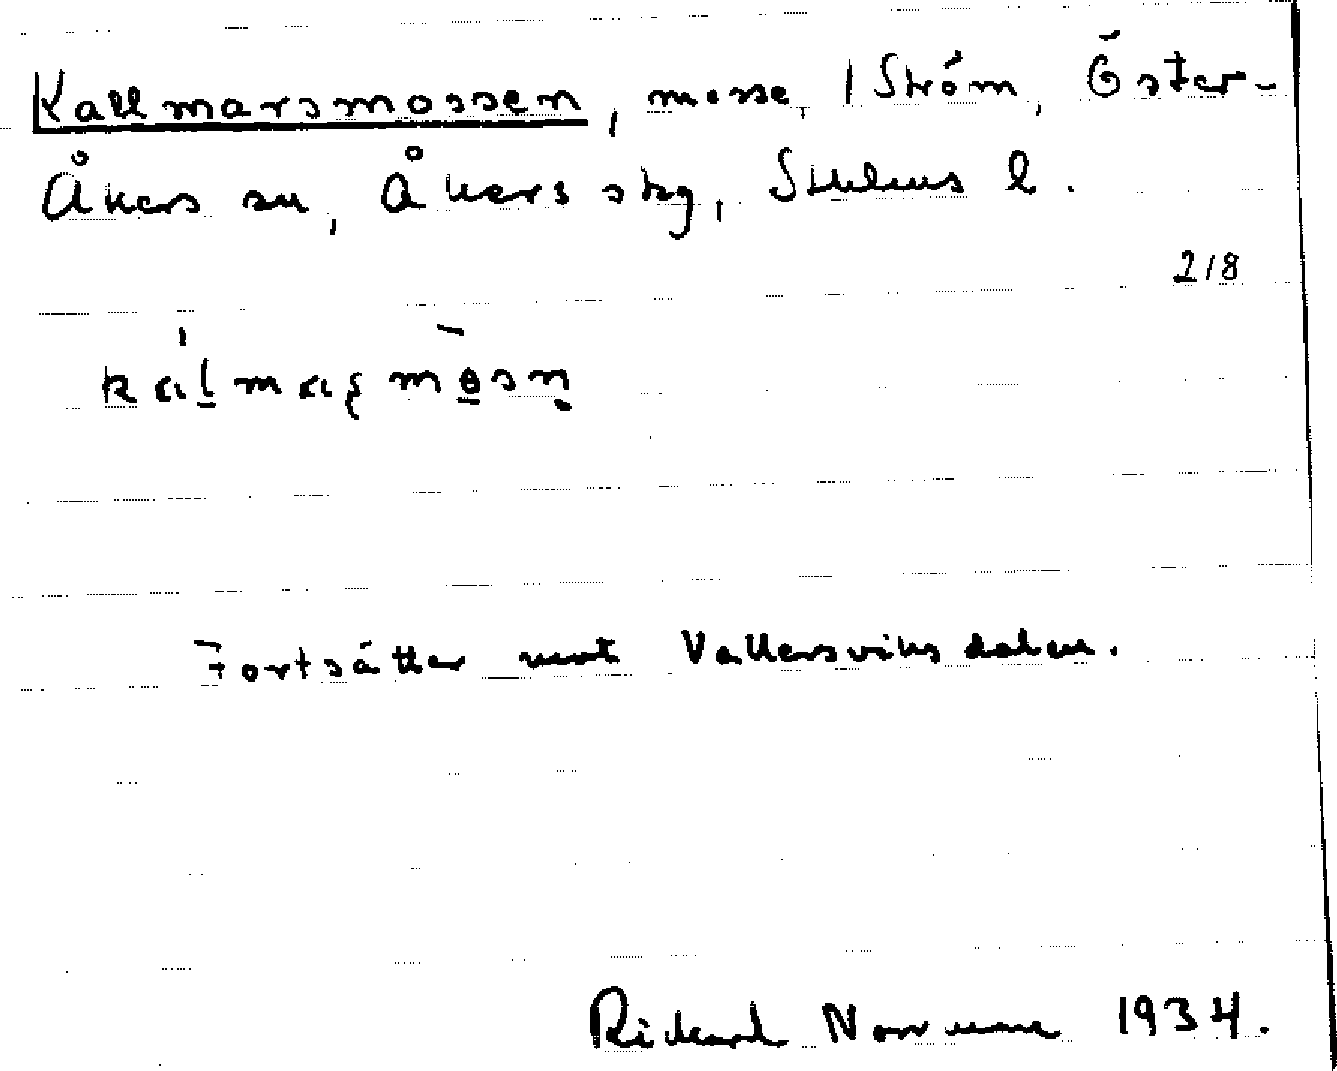 Kallmarsmossen, mosse, 1 Ström, Öster-
Åkers sn, Åkers skg, Sthlms l.
218
Fortsätter mot Valkersviksdalen.
Rickard Norrman 1934.